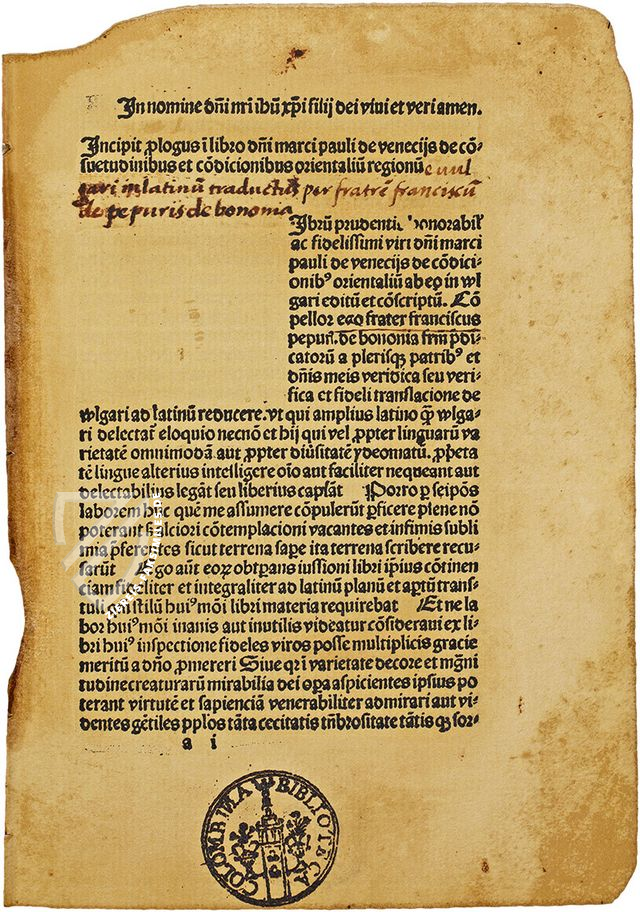 In nomine dñi nr̃i ihũ xp̃i filij dei viui et veri amen.
Incipit ꝓlogus ĩ libro dñi marci pauli de venecijs de cõ-
suetudinibus et cõdicionibus orientaliũ regionũ e vul
gari in latinũ traductus per fratrẽ franciscũ
de pepuris de bononia
Ibrũ prudentis honorabil
ac fidelissimi viri dñi marci
pauli de venecijs de cõdici-
onibꝰ orientaliũ ab eo in wl
gari editũ et cõscriptũ. Cõ
pellor ego frater franciscus
pepur. de bononia frm̃ p̃di-
catorũ a plerisqꝫ patribꝰ et
dñis meis veridica seu veri-
fica et fideli translacione de
wlgari ad latinũ reducere. vt qui amplius latino qꝫ wlga-
ri delectant̃ eloquio necnõ et hij qui vel ꝓpter linguarũ va
rietatẽ omnimodã aut ꝓpter diũsitatẽ ydeomatũ. ꝓp̃eta
tẽ lingue alterius intelligere oĩo aut faciliter nequeant aut
delectabilius legãt seu liberius capiãt Porro ꝑ seip̃os
laborem hũc quẽ me assumere cõpulerũt ꝑficere plene nõ
poterant altiori cõtemplacioni vacantes et infimis subli
mia p̃ferentes sicut terrena sapere ita terrena scribere recu-
sarũt Ego aũt eoꝝ obtꝑans iussioni libri ip̃ius cõtinen
ciam fideliter et integraliter ad latinũ planũ et aꝑtũ trans-
tuli qm̃ stilũ huiꝰ mõi libri materia requirebat Et ne la
bor huiꝰ mõi inanis aut inutilis videatur cõsideraui ex li-
bri huiꝰ inspectione fideles viros posse multiplicis gracie
meritũ a dño ꝓmereri Siue qꝛ ĩ varietate decore et mg̃ni
tudine creaturarũ mirabilia dei oꝑa aspicientes ipsius po
terant virtutẽ et sapienciã venerabiliter admirari aut vi-
dentes gẽtiles pp̃los tãta cecitatis tñbrositate tãtis qꝫ sor-
a i
COLOMBINA BIBLIOTECA